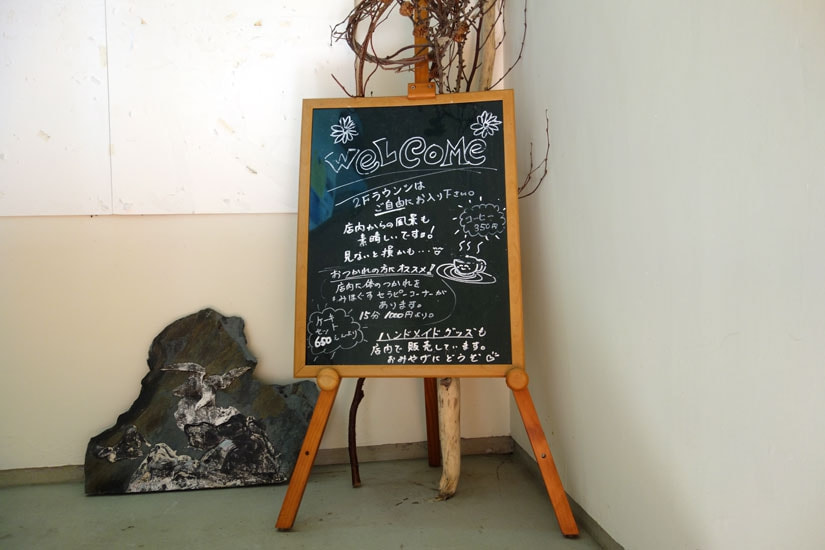 WELCOME
2Fラウンジは
ご自由にお入り下さい。
店内からの風景も
素晴しいですョ!
見ないと損かも…
コーヒー
350円
おつかれの方にオススメ!
店内に体のつかれを
もみほぐすセラピーコーナーが
あります。
15分 1000円より。
ケーキ
セット
650
ハンドメイドグッズも
店内で販売しています。
おみやげにどうぞ